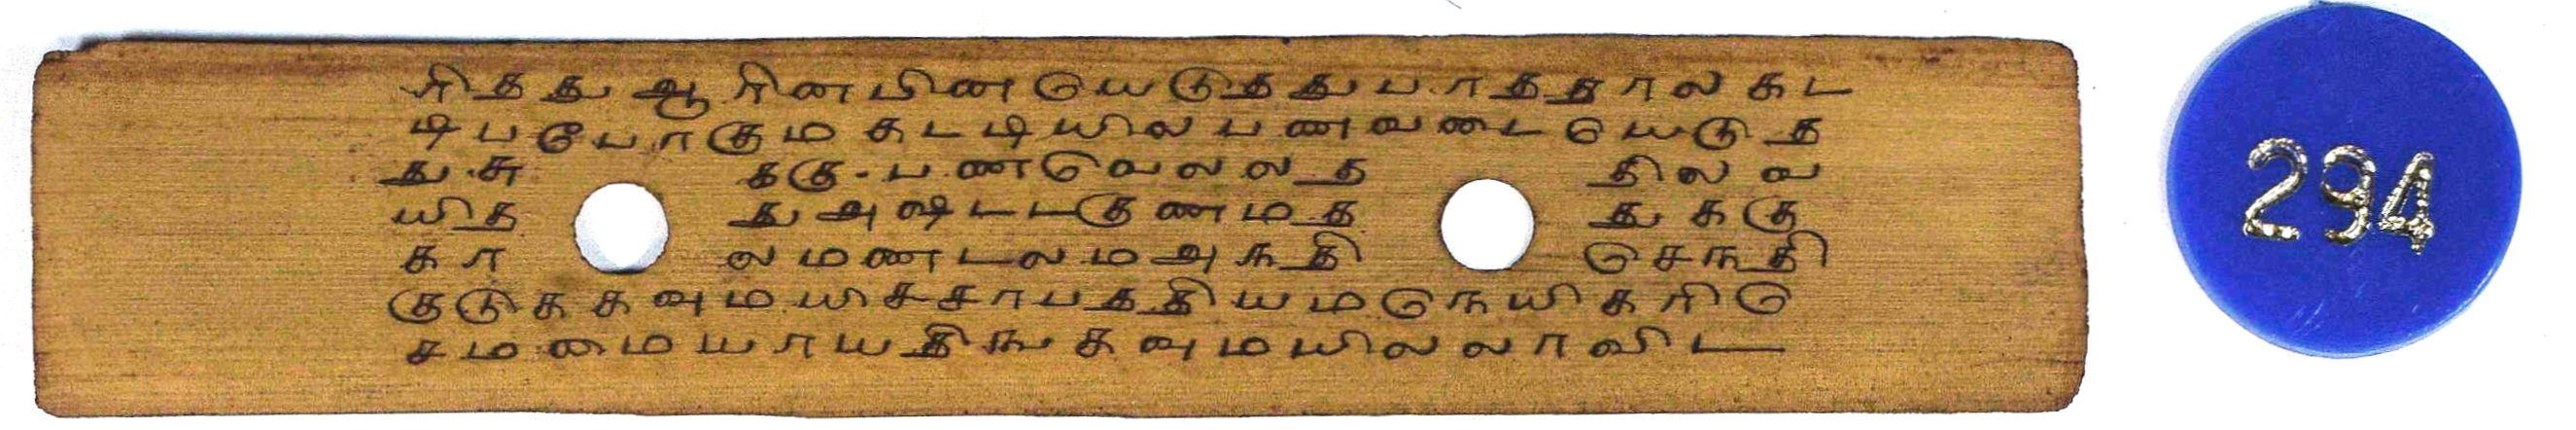 ரித்து ஆரினபின யெடுதது பாதததாலகட
டிபபோகும கடடியில பணவடையெடுத
து சு ககு பணவெலலத திலவ
யித து அஷடடகுணமத துககு
கா லமணடலமஅநதி செநதி
குடுககவும யிசசாபததியமநெயிகரிசெ
சமமைமயாயதிஙகவுமயிலலாவிட
294